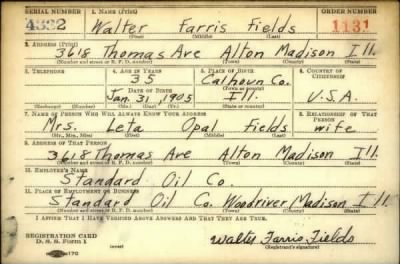 SERIAL NUMBER 1. NAME (Print) ORDER NUMBER
4332 Walter Farris Fields 1131
(First) (Middle) (Last)
2. ADDRESS (Print)
3618 Thomas Ave Alton Madison Ill.
(Number and street or R. F. D. number) (Town) (County) (State)
3. TELEPHONE 4. AGE IN YEARS 5. PLACE OF BIRTH 6. COUNTRY OF CITIZENSHIP
35 Calhoun Co.
DATE OF BIRTH (Town or county)
Jan. 31, 1905 Ill. U.S.A.
(Exchange) (Number) (Mo.) (Day) (Yr.) (State or country)
7. NAME OF PERSON WHO WILL ALWAYS KNOW YOUR ADDRESS 8. RELATIONSHIP OF THAT PERSON
Mrs. Leta Opal Fields wife
(Mr., Mrs., Miss) (First) (Middle) (Last)
9. ADDRESS OF THAT PERSON
3618 Thomas Ave Alton Madison Ill.
(Number and street or R. F. D. number) (Town) (County) (State)
10. EMPLOYER'S NAME
Standard Oil Co.
11. PLACE OF EMPLOYMENT OR BUSINESS
Standard Oil Co. Woodriver Madison Ill
(Number and street or R. F. D. number) (Town) (County) (State)
I AFFIRM THAT I HAVE VERIFIED ABOVE ANSWERS AND THAT THEY ARE TRUE.
REGISTRATION CARD
D. S. S. Form 1 (over) Walter Farris Fields
(Registrant's signature)